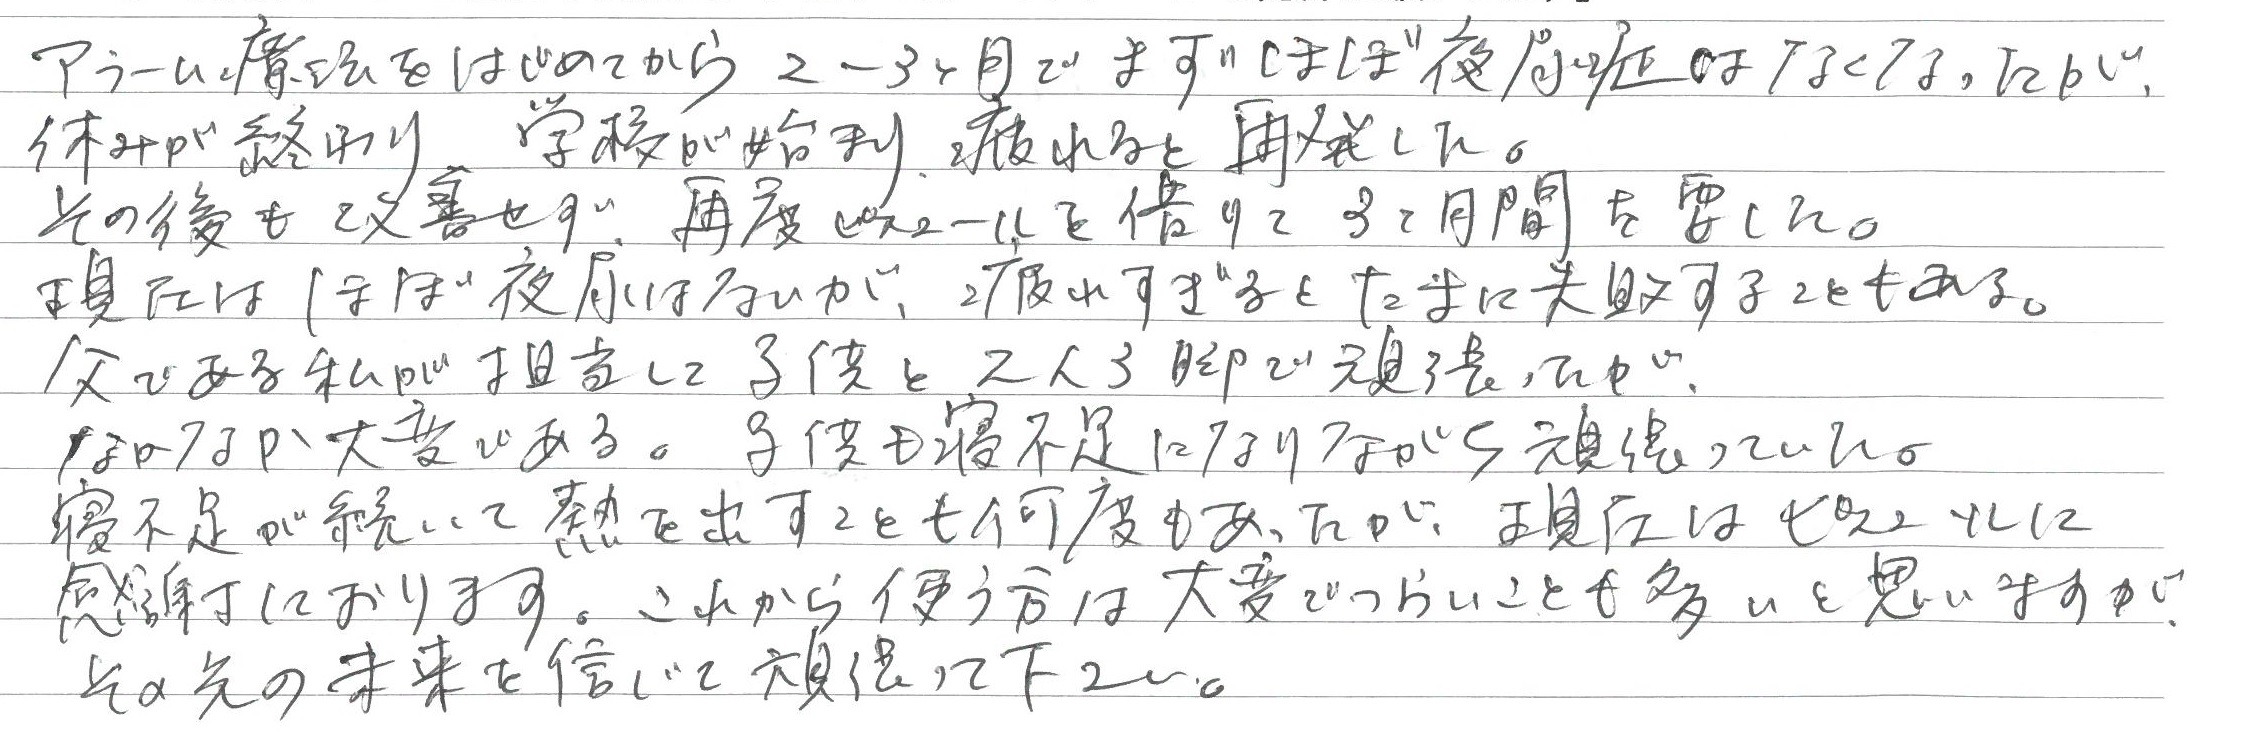 アラーム療法をはじめてから2〜3ヶ月でまずほぼ夜尿症はなくなったが、
休みが終わり、学校が始まり、疲れると再発した。
その後も改善せず、再度ピスコールを借りて3ヶ月間を要した。
現在はほぼ夜尿はないが、疲れすぎるとたまに失敗することもある。
父である私が担当して子供と2人3脚で頑張ったが、
なかなか大変である。子供も寝不足になりながら頑張っていた。
寝不足が続いて熱を出すことも何度もあったが、現在はピスコールに
感謝しております。これから使う方は大変でつらいことも多いと思いますが、
その先の未来を信じて頑張って下さい。